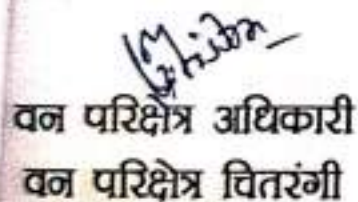 वन परिक्षेत्र अधिकारी
वन परिक्षेत्र चितरंगी